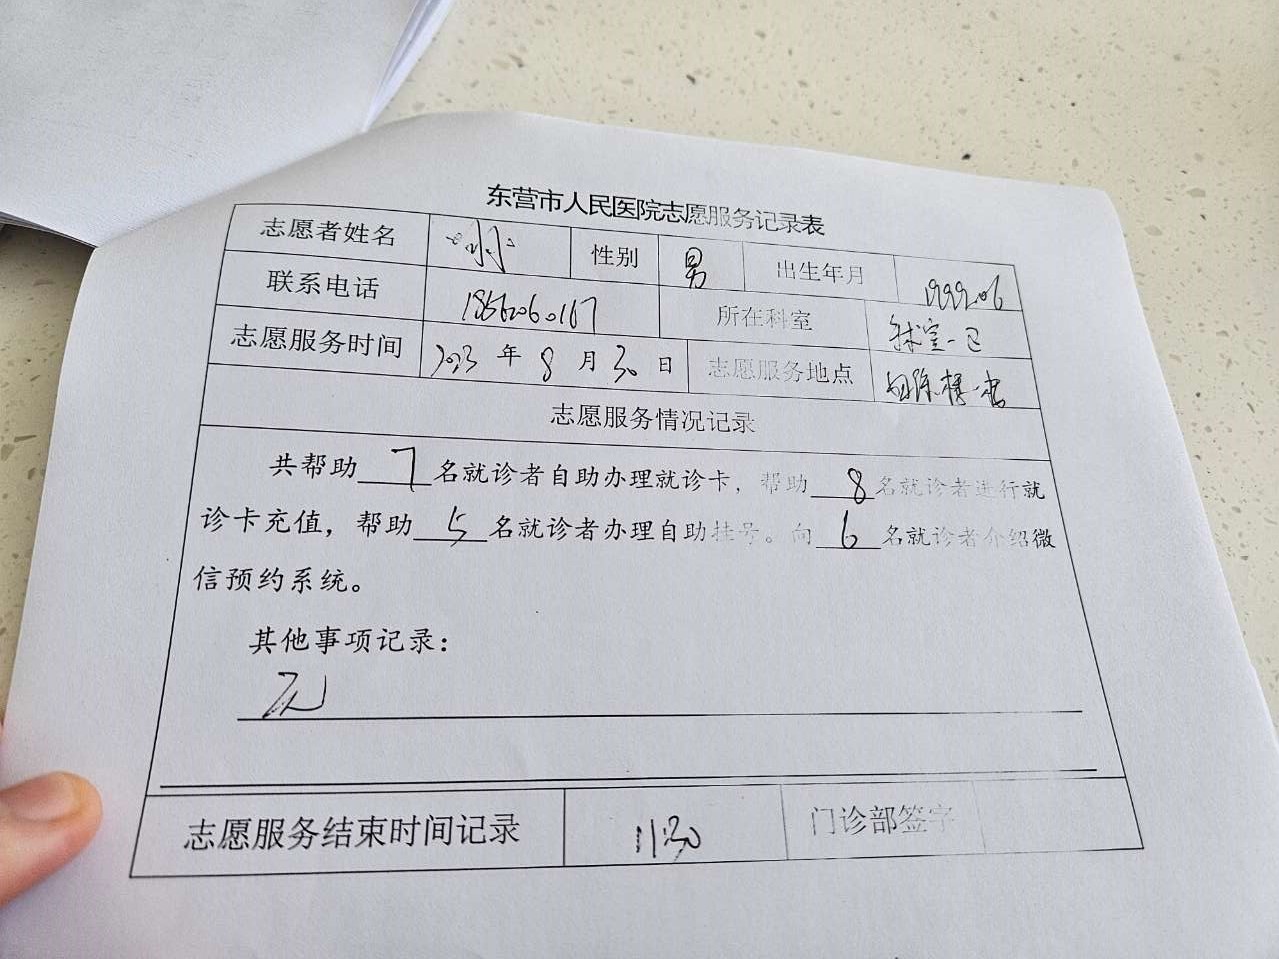 东营市人民医院志愿服务记录表
志愿者姓名 性别 男 出生年月 1999.06
联系电话 18562060167 所在科室 手术室一区
志愿服务时间 2023 年 8 月 30 日 志愿服务地点 门诊楼一楼
志愿服务情况记录
共帮助 7 名就诊者自助办理就诊卡，帮助 8 名就诊者进行就
诊卡充值，帮助 5 名就诊者办理自助挂号。向 6 名就诊者介绍微
信预约系统。
其他事项记录：
无
志愿服务结束时间记录 11:30 门诊部签字